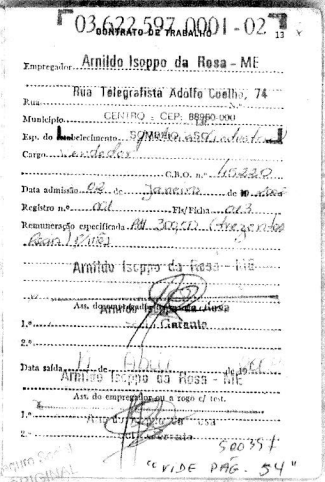 03.622.597/0001-02
CONTRATO DE TRABALHO 13
Empregador Arnildo Isoppo da Rosa - ME
Rua Telegrafista Adolfo Coelho, 74
Rua N.º
Município CENTRO - CEP: 88960-000
Esp. do Estabelecimento SOMBRIO
Cargo Vendedor
C.B.O. n.º 45220
Data admissão 02 de Janeiro de
Registro n.º Fls/Ficha 013
Remuneração especificada R$ 300,00 (Trezentos
Reais)
Arnildo Isoppo da Rosa - ME
Ass. do
Gerente
1.º
2.º
Data saída 11 de Abril de
Arnildo Isoppo da Rosa - ME
Ass. do empregador ou a rogo c/ test.
1.º
2.º
500397
"VIDE PAG. 54"
ORIGINAL